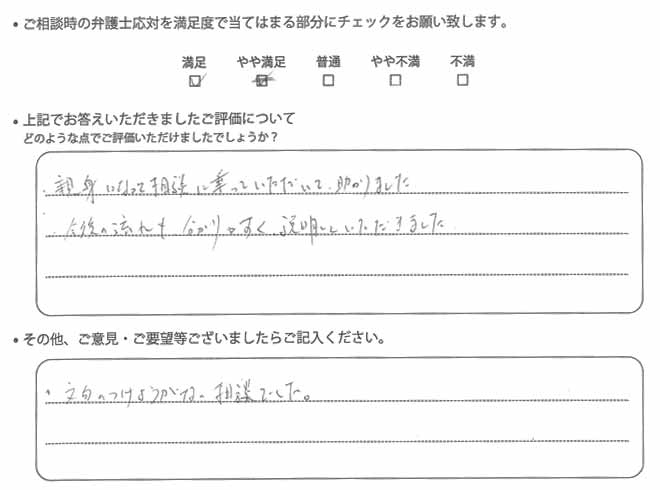 • ご相談時の弁護士応対を満足度で当てはまる部分にチェックをお願い致します。
満足 やや満足 普通 やや不満 不満
• 上記でお答えいただきましたご評価について
どのような点でご評価いただけましたでしょうか?
・親身になって相談に乗っていただいて、助かりました
・今後の流れも 分かりやすく 説明していただきました
• その他、ご意見・ご要望等ございましたらご記入ください。
・文句のつけようがない相談でした。